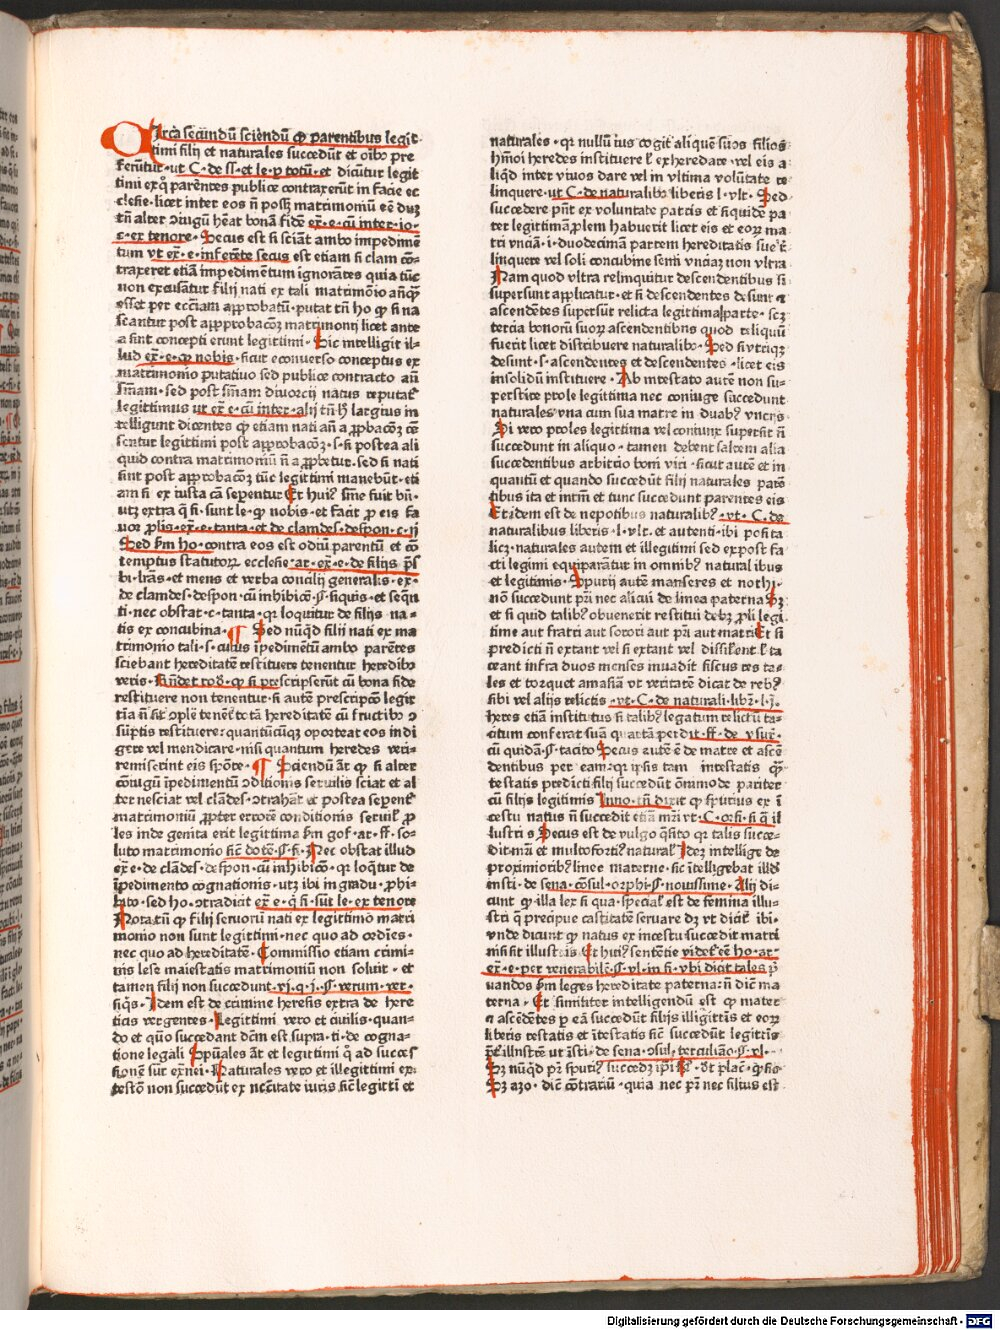 Circa secundū sciēdū ꝙ parentibus legit
timi filij et naturales succedūt et oībo pre
ferūtur·ut C·de ss·et le·p totū·et dicūtur legit
timi ex qͦ parētes publice contraxerūt in facie ec
clesie·licet inter eos n̄ possꝫ matrimoniū eē duꝫ
tn̄ alter ↄiugū heat bonā fidē ex̄·e·cū inter·io·
c·ex tenore·Secus est si sciāt ambo impedimē
tum vt ex̄·e·inferēte secus est etiam si clam cō
traxeret etiā impedimētum ignorātes quia tūc
non excusātur filij nati ex tali matrimōio an̄ꝙ
esset per eccƚiam approbatū·putat tn̄ ho ꝙ si na
scantur post approbacōꝫ matrimonij licet ante
a sint concepti erunt legittimi·Sic intelligit il-
lud ex̄·e·ꝙ nobis·sicut econuerso conceptus ex
matrimonio putatiuo sed publice contracto an̄
sn̄iam·sed post sn̄iam diuorcij natus reputatᷣ
legittimus ut ex̄·e·cū inter·alij tn̄ ħ largius in
telligunt dicentes ꝙ etiam nati an̄ a ꝓbacōꝫ cē
sentur legittimi post approbacōꝫ·s·si postea ali
quid contra matrimoniū n̄ a ꝓbetur·sed si nati
sint post approbacōꝫ tūc legittimi manebūt·eti
am si ex iusta cā sepentur Et huiꝰ sn̄ie fuit bn̄·
utꝫ extra q̄ si·sunt le·ꝙ nobis·et facit ꝓ eis fa
uor ꝓlis·ex̄·e·tanta·et de clamdes·despon·c·ij
Sed ẜm ho·contra eos est odiū parentū et cō
temptus statutorꝝ ecclesie·ar·ex̄·e·de filijs p̄s
bi·lr̄as·et mens et verba concilij generalis·ex·
de clamdes·despon·cū inhibicō·¶·siquis·et seqn̄
ti·nec obstat·c·tanta·qꝛ loquitur de filijs na-
tis ex concubina·¶ Sed nūqd filij nati ex ma
trimonio tali·s·cuius īpedimētū ambo parētes
sciebant hereditatē restituere tenentur heredibo
veris·Rn̄det roḋ·ꝙ si prescripserūt cū bona fide
restituere non tenentur·si autē prescripcō legit
tīa n̄ sit ꝯple tenēt totā hereditatē cū fructibo ↄ
sūptis restituere·quantūcūqꝫ oporteat eos indi
gere vel mendicare·nisi quantum heredes veri·
remiserint eis spōte·¶ Sciendū āt ꝙ si alter
cōiugū īpedimentū ↄditionis seruilis sciat et al
ter nesciat vel clādes·ↄtrahāt et postea sepent᷑
matrimoniū ꝓpter errorē conditionis seruiƚ ꝓ
les inde genita erit legittima ẜm gof·ar·ff·so-
luto matrimonio sic̄ dotē·¶·fi·Nec obstat illud
ex̄·e·de clādes·despon·cū inhibicō·qꝛ loqtur de
īpedimento cognationis·utꝫ ibi in gradu·ꝓhi-
bito·sed ho·ↄtradicit ex̄ e·q̄ si·sūt le·ex tenore
Notatū ꝙ filij seruorū nati ex legittimo matri
monio non sunt legittimi·nec quo ad ordīes·
nec quo ad hereditatē·Commissio etiam crimi-
nis lese maiestatis matrimoniū non soluit·et
tamen filij non succedunt·vi·q·i·¶·verum·ver·
siqs·Idem est de crimine heresis extra de here
ticis vergentes·Legittimi vero et ciuilis·quan-
do et quō succedant dc̄m est·supra·ti·de cogna-
tione legali Spūales āt et legittimi q̄ ad succes
sionē sūt exnei·Naturales vero et illegittimi ex·
testō non succedūt ex nccītate iuris sic̄ legitti et
naturales·qꝛ nullū ius cogit aliquē suos filios
hm̄oi heredes instituere ƚ exheredare vel eis a
liqd inter viuos dare vel in vltima volūtate re
linquere·ut C·de naturalibo liberis l·vlt·Sed
succedere pn̄t ex voluntate patris et siquide pa
ter legittimā ꝓlem habuerit licet eis et eoꝝ ma
tri vnciā·i·duodecimā partem hereditatis sue re
linquere vel soli concubine semi vnciaꝫ non vltra
Nam quod vltra relinquitur descendentibus si
supersunt applicatur·et si descendentes desunt ⁊
ascendētes supersūt relicta legittima parte·scꝫ
tercia bonorū suoꝝ ascendentibns quod reliquū
fuerit licet distribuere naturalibo·Sed si vtriqꝫ
desunt·s·ascendentes et descendentes·licet eis
insolidū instituere·Ab intestato autē non su-
perstite prole legittima nec coniuge succedunt
naturales vna cum sua matre in duabꝰ vncijs·
Si vero proles legittima vel coniunx supersit n̄
succedunt in aliquo·tamen debent saltem alia
succedentibus arbitrio boni viri·sicut autē et in
quantū et quando succedūt filij naturales parē
tibus ita et intm̄ et tunc succedunt parentes eis
Et idem est de nepotibus naturalibꝰ·vt·C·de
naturalibus liberis·l·vlt·et autenti·ibi posita
licꝫ·naturales autem et illegitimi sed expost fa
cti legimi equiparātur in omnibꝰ naturalibus
et legitimis·Spurij autē manseres et nothi·
nō succedunt pr̄i nec alicui de linea paterna Sꝫ
et si quid talibꝰ obuenerit restitui debꝫ ꝓli legi
time aut fratri aut sorori aut pr̄i aut matri Et si
predicti n̄ extant vel si extant vel dissiƚent ƚ ta
ceant infra duos menses inuadit fiscus res ta-
les et torquet amasiā vt veritatē dicat de rebꝰ
sibi vel alijs relictis·vt·C·de naturali·libꝫ·l·j·
heres etiā institutus si talibꝰ legatum relictū ta-
citum conferat suā quartā perdit·ff·de vsur·
cū quidā·¶·tacito Secus autē ē de matre et ascē
dentibus per eam·qꝛ ipsis tam intestatis qm̄
testatis predicti filij succedūt om̄imode pariter
cū filijs legitimis Inno·tn̄ dixit ꝙ spurius ex ī
cestu natus n̄ succedit etiā mr̄i vt·C·orfi·si q̄ il
lustris Secus est de vulgo q̄sito qꝛ talis succe-
dit·mr̄i et multofortiꝰ naturaƚ Idēꝫ intellige de
proximioribꝰ linee materne·sic̄ ītelligebat illđ
insti·de sena·cōsul·orphi·¶·nouissime·Alij di-
cunt ꝙ illa lex si qua·speciaƚ est de femina illu-
stri q̄ precipue castitatē seruare dꝫ vt dicit᷑ ibi·
vnde dicunt ꝙ natus ex incestu succedit matri
nisi sit illustris Et huiꝰ sentētie videt᷑ eē ho·ar·
ex̄·e·per venerabilē·¶·vl·in fi·vbi dicit tales p̄
uandos ẜm leges hereditate paterna·n̄ dic̄ ma
terna·Et similiter intelligendū est ꝙ mater
⁊ ascēdētes p eā succedūt filijs illigittis et eoꝝ
liberis testatis et ītestatis sic̄ succedūt legittis
p̄t illustrē ut īsti·de sena·ↄsul·terculiāo·¶·vl·
Sꝫ nūqd pr̄ spuriꝰ succedꝫ īpi Rƚ·dt plac̄·ꝙ sic
Sꝫ azo·dic̄ cōtrariū·quia nec pr̄ nec filius est
Digitalisierung gefördert durch die Deutsche Forschungsgemeinschaft - DFG